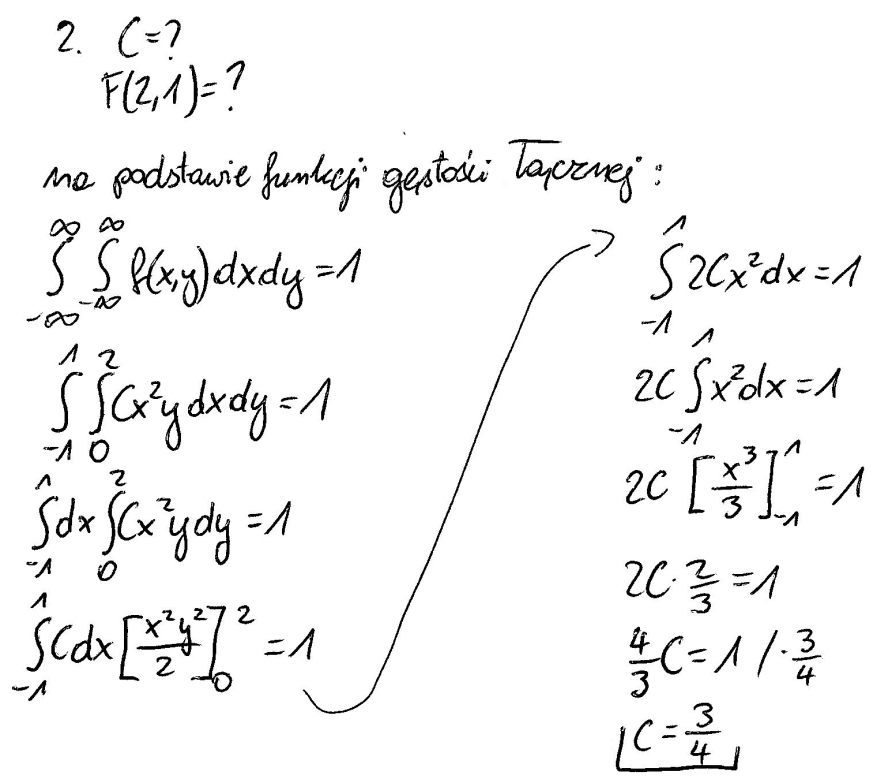 2. C=?
F(2,1)=?
na podstawie funkcji gęstości łącznej:
∞ ∞
∫ ∫ f(x,y)dxdy=1
-∞ -∞
1 2
∫ ∫ Cx²y dxdy=1
-1 0
1 2
∫dx ∫Cx²y dy=1
-1 0
1
∫Cdx [x²y²/2]₀² =1
-1
1
∫ 2Cx²dx=1
-1
1
2C ∫x²dx=1
-1
2C [x³/3]₋₁¹ =1
2C·2/3=1
4/3 C=1 /·3/4
C=3/4